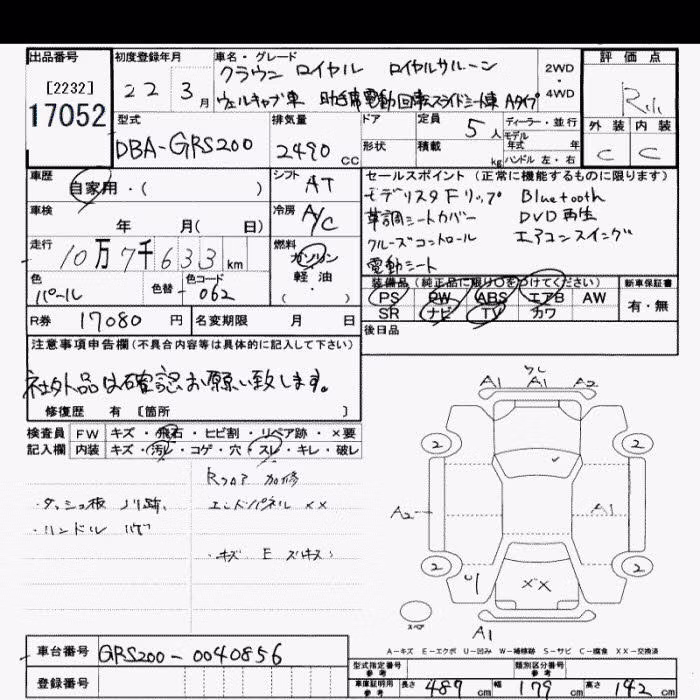 出品番号 初度登録年月 車名・グレード 評価点
[2232]
17052
22 3月
クラウン ロイヤル ロイヤルサルーン
ウェルキャブ車 助手席電動回転スライドシート車 Aタイプ
2WD
・
4WD
R
外装 内装
C C
型式 排気量 ドア 定員 5人 ディーラー・並行
DBA-GRS200 2490 CC
形状 積載 kg
モデル
年式 年
ハンドル 左・右
車歴 シフト セールスポイント (正常に機能するものに限ります)
自家用・( ) AT
モデリスタFリップ Bluetooth
車検 冷房 革調シートカバー DVD再生
年 月( 日) A/C クルーズコントロール エアコンスイング
電動シート
走行 燃料
10万7千633km ガソリン
軽・油
( ・ )
色 色替 色コード
パール 062
装備品 (純正品に限り○をつけてください) 新車保証書
PS PW ABS エアB AW 有・無
SR ナビ TV カワ
R券 17080円 名変期限 月 日
後日品
注意事項申告欄(不具合内容等は具体的に記入して下さい)
社外品は確認お願い致します。
修復歴 有 [箇所 ]
検査員 FW キズ・飛石・ヒビ割・リペア跡・×要
記入欄 内装 キズ・汚レ・コゲ・穴・スレ・キレ・破レ
Rフロア 加修
・ダッシュ板 ノリ跡 エンドパネル ××
・ハンドル ハゲ
・キズ E スリキズ
A1 A1 A2
2 2
A2 A1
2 2
U1 ××
スペア
A1
A-キズ E-エクボ U-凹み W-補修跡 S-サビ C-腐食 XX-交換済
車台番号 GRS200-0040856
登録番号
型式指定番号 参考 類別区分番号 参考
車庫証明用 参考 長さ 487cm 幅 179cm 高さ 142cm